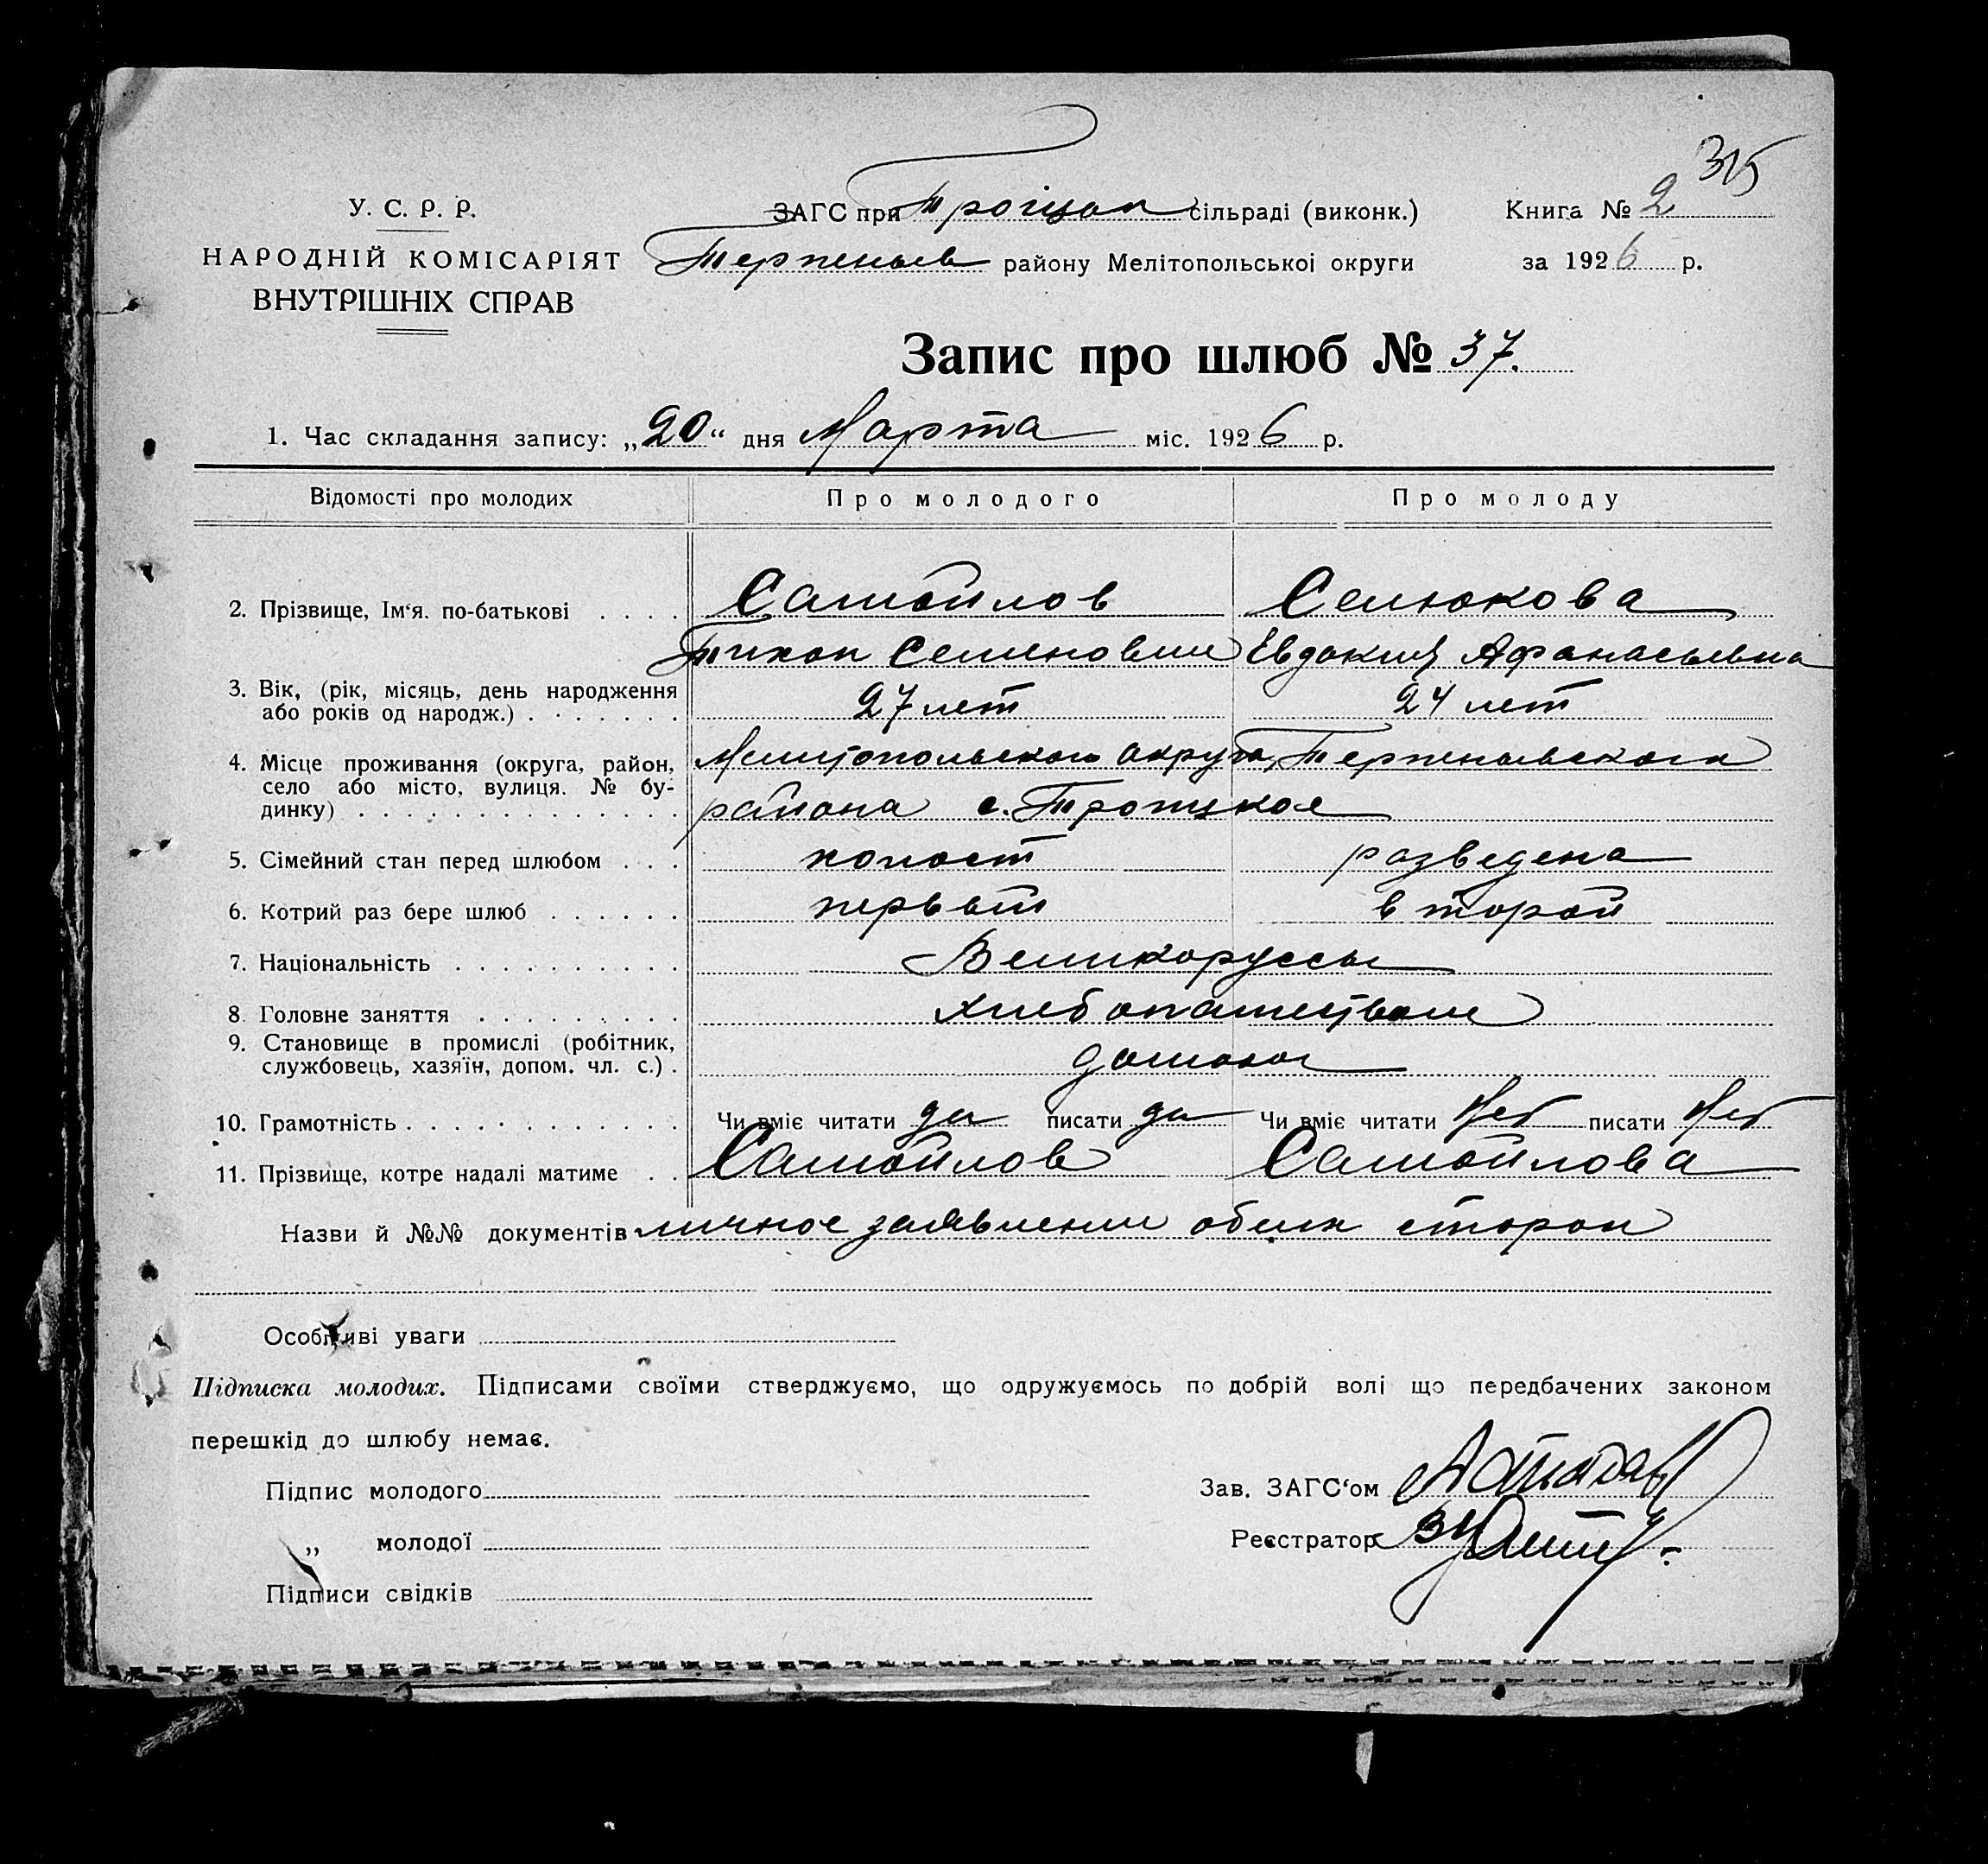 315
У. С. Р. Р.
ЗАГС при Троицком сільраді (виконк.) Книга № 2
НАРОДНІЙ КОМІСАРІЯТ
ВНУТРІШНІХ СПРАВ
Терпеньев району Мелітопольської округи за 1926 р.
Запис про шлюб № 37.
1. Час складання запису: „20“ дня Марта міс. 1926 р.
Відомості про молодих Про молодого Про молоду
2. Прізвище, Ім‘я. по-батькові . . . . Самойлов Селюкова
Тихон Семенович Евдокия Афанасьевна
3. Вік, (рік, місяць, день народження
або років од народж.) . . . . . . . 27 лет 24 лет
4. Місце проживання (округа, район,
село або місто, вулиця. № бу-
динку) . . . . . . . . . . . . . .
Мелитопольского округа, Терпеньевского
района с. Троицкое
5. Сімейний стан перед шлюбом . . . холост разведена
6. Котрий раз бере шлюб . . . . . . первый второй
7. Національність . . . . . . . . . . Великоруссы
8. Головне заняття . . . . . . . . . хлебопашеством
9. Становище в промислі (робітник,
службовець, хазяїн, допом. чл. с.) .
10. Грамотність . . . . . . . . . . . . Чи вміє читати да писати да Чи вміє читати Нет писати Нет
11. Прізвище, котре надалі матиме . . Самойлов Самойлова
Назви й №№ документів личное заявлении обоих сторон
Особливі уваги
Підписка молодих. Підписами своїми стверджуємо, що одружуємось по добрій волі що передбачених законом
перешкід до шлюбу немає.
Підпис молодого Зав. ЗАГС‘ом
„ молодої Реєстратор
Підписи свідків